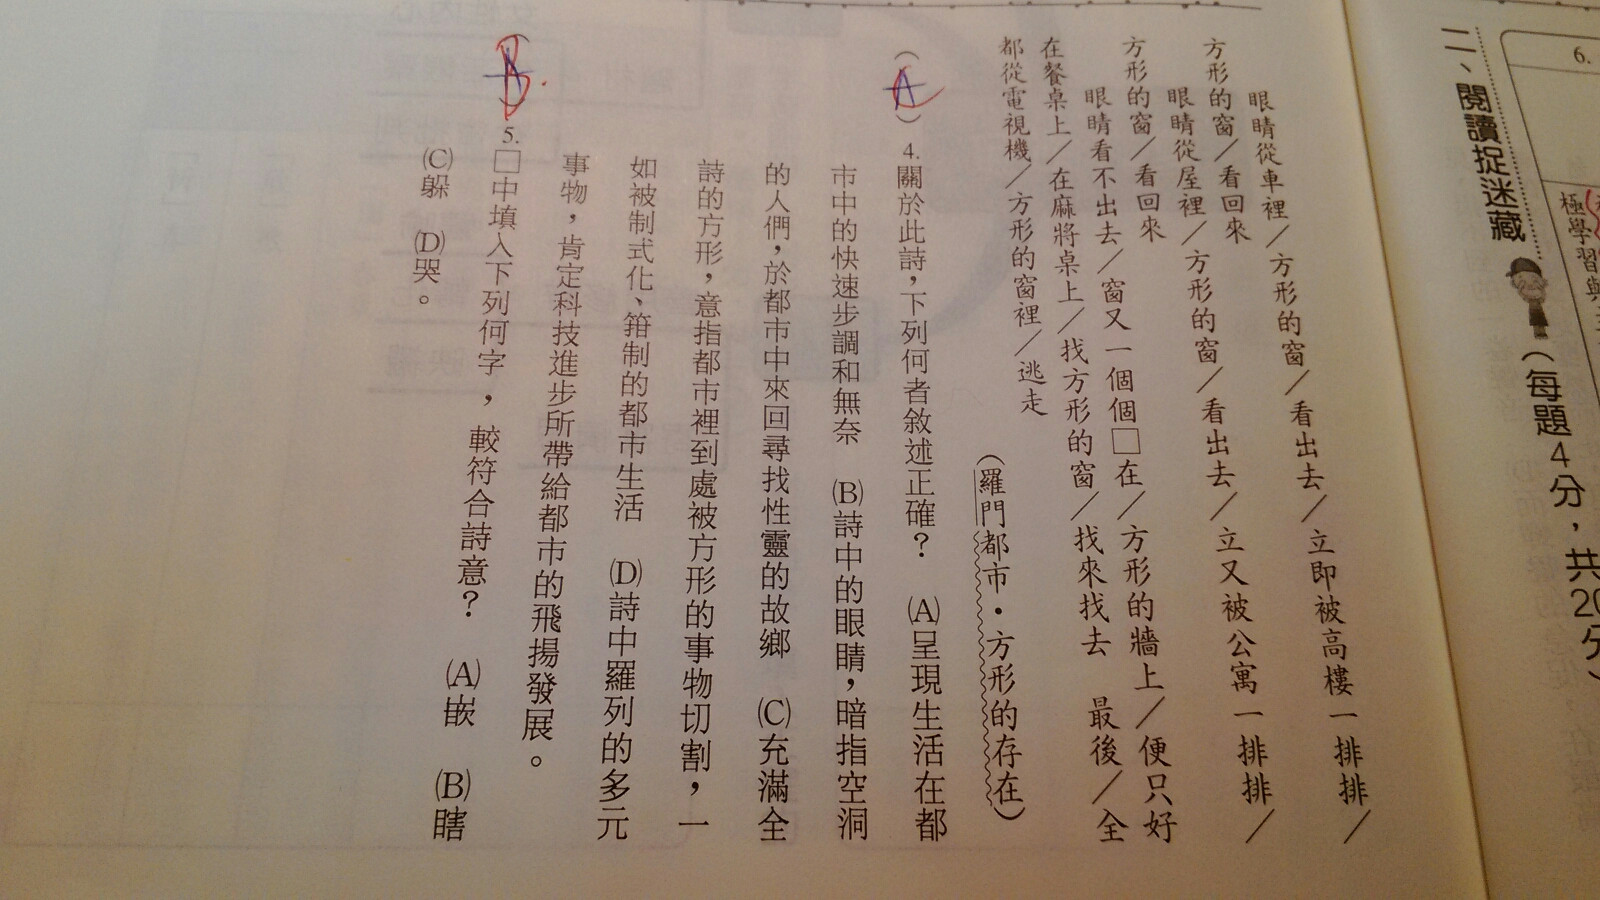 6.
極學習與
二、閱讀捉迷藏(每題4分,共20分)
眼睛從車裡/方形的窗/看出去/立即被高樓一排排/
方形的窗/看回來
眼睛從屋裡/方形的窗/看出去/立又被公寓一排排/
方形的窗/看回來
眼睛看不出去/窗又一個個□在/方形的牆上/便只好
在餐桌上/在麻將桌上/找方形的窗/找來找去 最後/全
都從電視機/方形的窗裡/逃走
(羅門都市·方形的存在)
(A)4.關於此詩,下列何者敘述正確? (A)呈現生活在都
市中的快速步調和無奈 (B)詩中的眼睛,暗指空洞
的人們,於都市中來回尋找性靈的故鄉 (C)充滿全
詩的方形,意指都市裡到處被方形的事物切割,一
如被制式化、箝制的都市生活 (D)詩中羅列的多元
事物,肯定科技進步所帶給都市的飛揚發展。
(B)5.□中填入下列何字,較符合詩意? (A)嵌 (B)瞎
(C)躲 (D)哭。